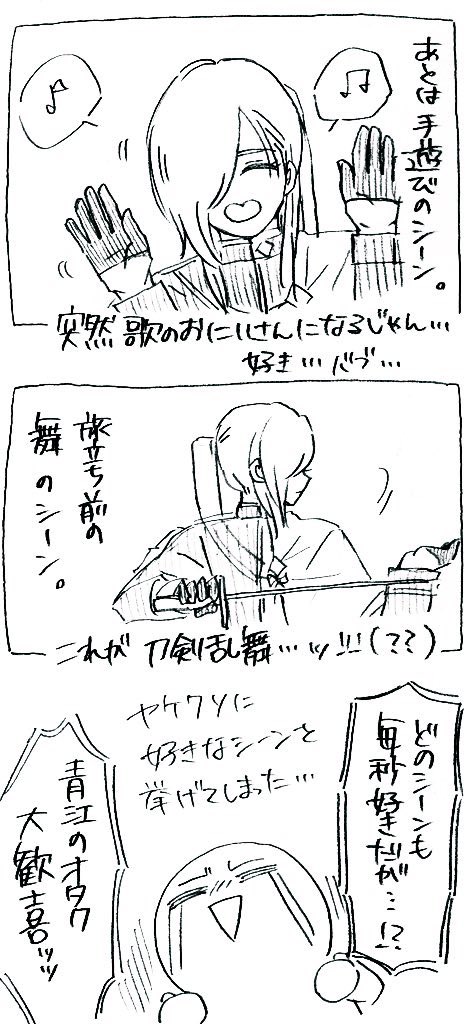 あとは手遊びのシーン。
突然歌のおにいさんになるじゃん…
好き…バブ…
旅立ち前の
舞のシーン。
これが刀剣乱舞…ッ!!!(??)
どのシーンも
毎秒好きだが…!?
ヤケクソに
好きなシーンを
挙げてしまった…
青江のオタク
大歓喜ッッ